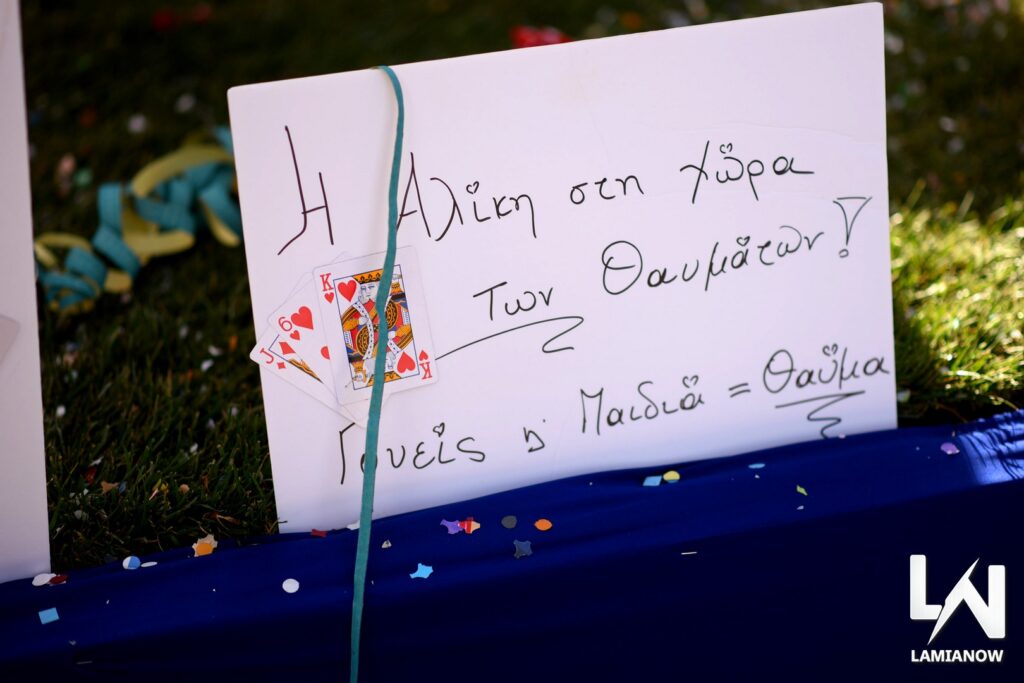 Η Αλίκη στη χώρα
των Θαυμάτων!
Γονείς κ' Παιδιά = Θαύμα
K
K
6
J
LW
LAMIANOW